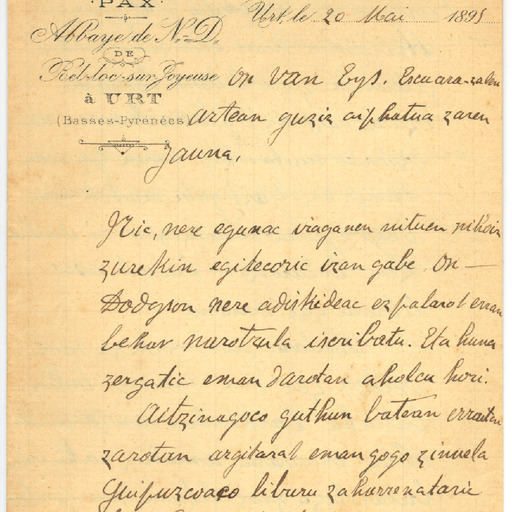 PAX
Abbaye de N.-D.
DE
Bel-loc-sur-Joyeuse
à URT
(Basses-Pyrenées)
Urt, le 20 Mai 1895
On Van Eys. Escuara-zalen
artean guziz aiphatua zaren
Jauna,
Nic, nere egunac iraganen nituen
zurekin egitecoric izan gabe On
Dodgson nere adiskideac ezpalarot eman
behar narotzula iscribatu. Eta huna
zergatic eman darotan aholcu hori.
Aitzinagoco guthun batean erraiten
zarotan argitarat eman gogo zinuela
Guipuzcoaco liburu zaharrenetaric